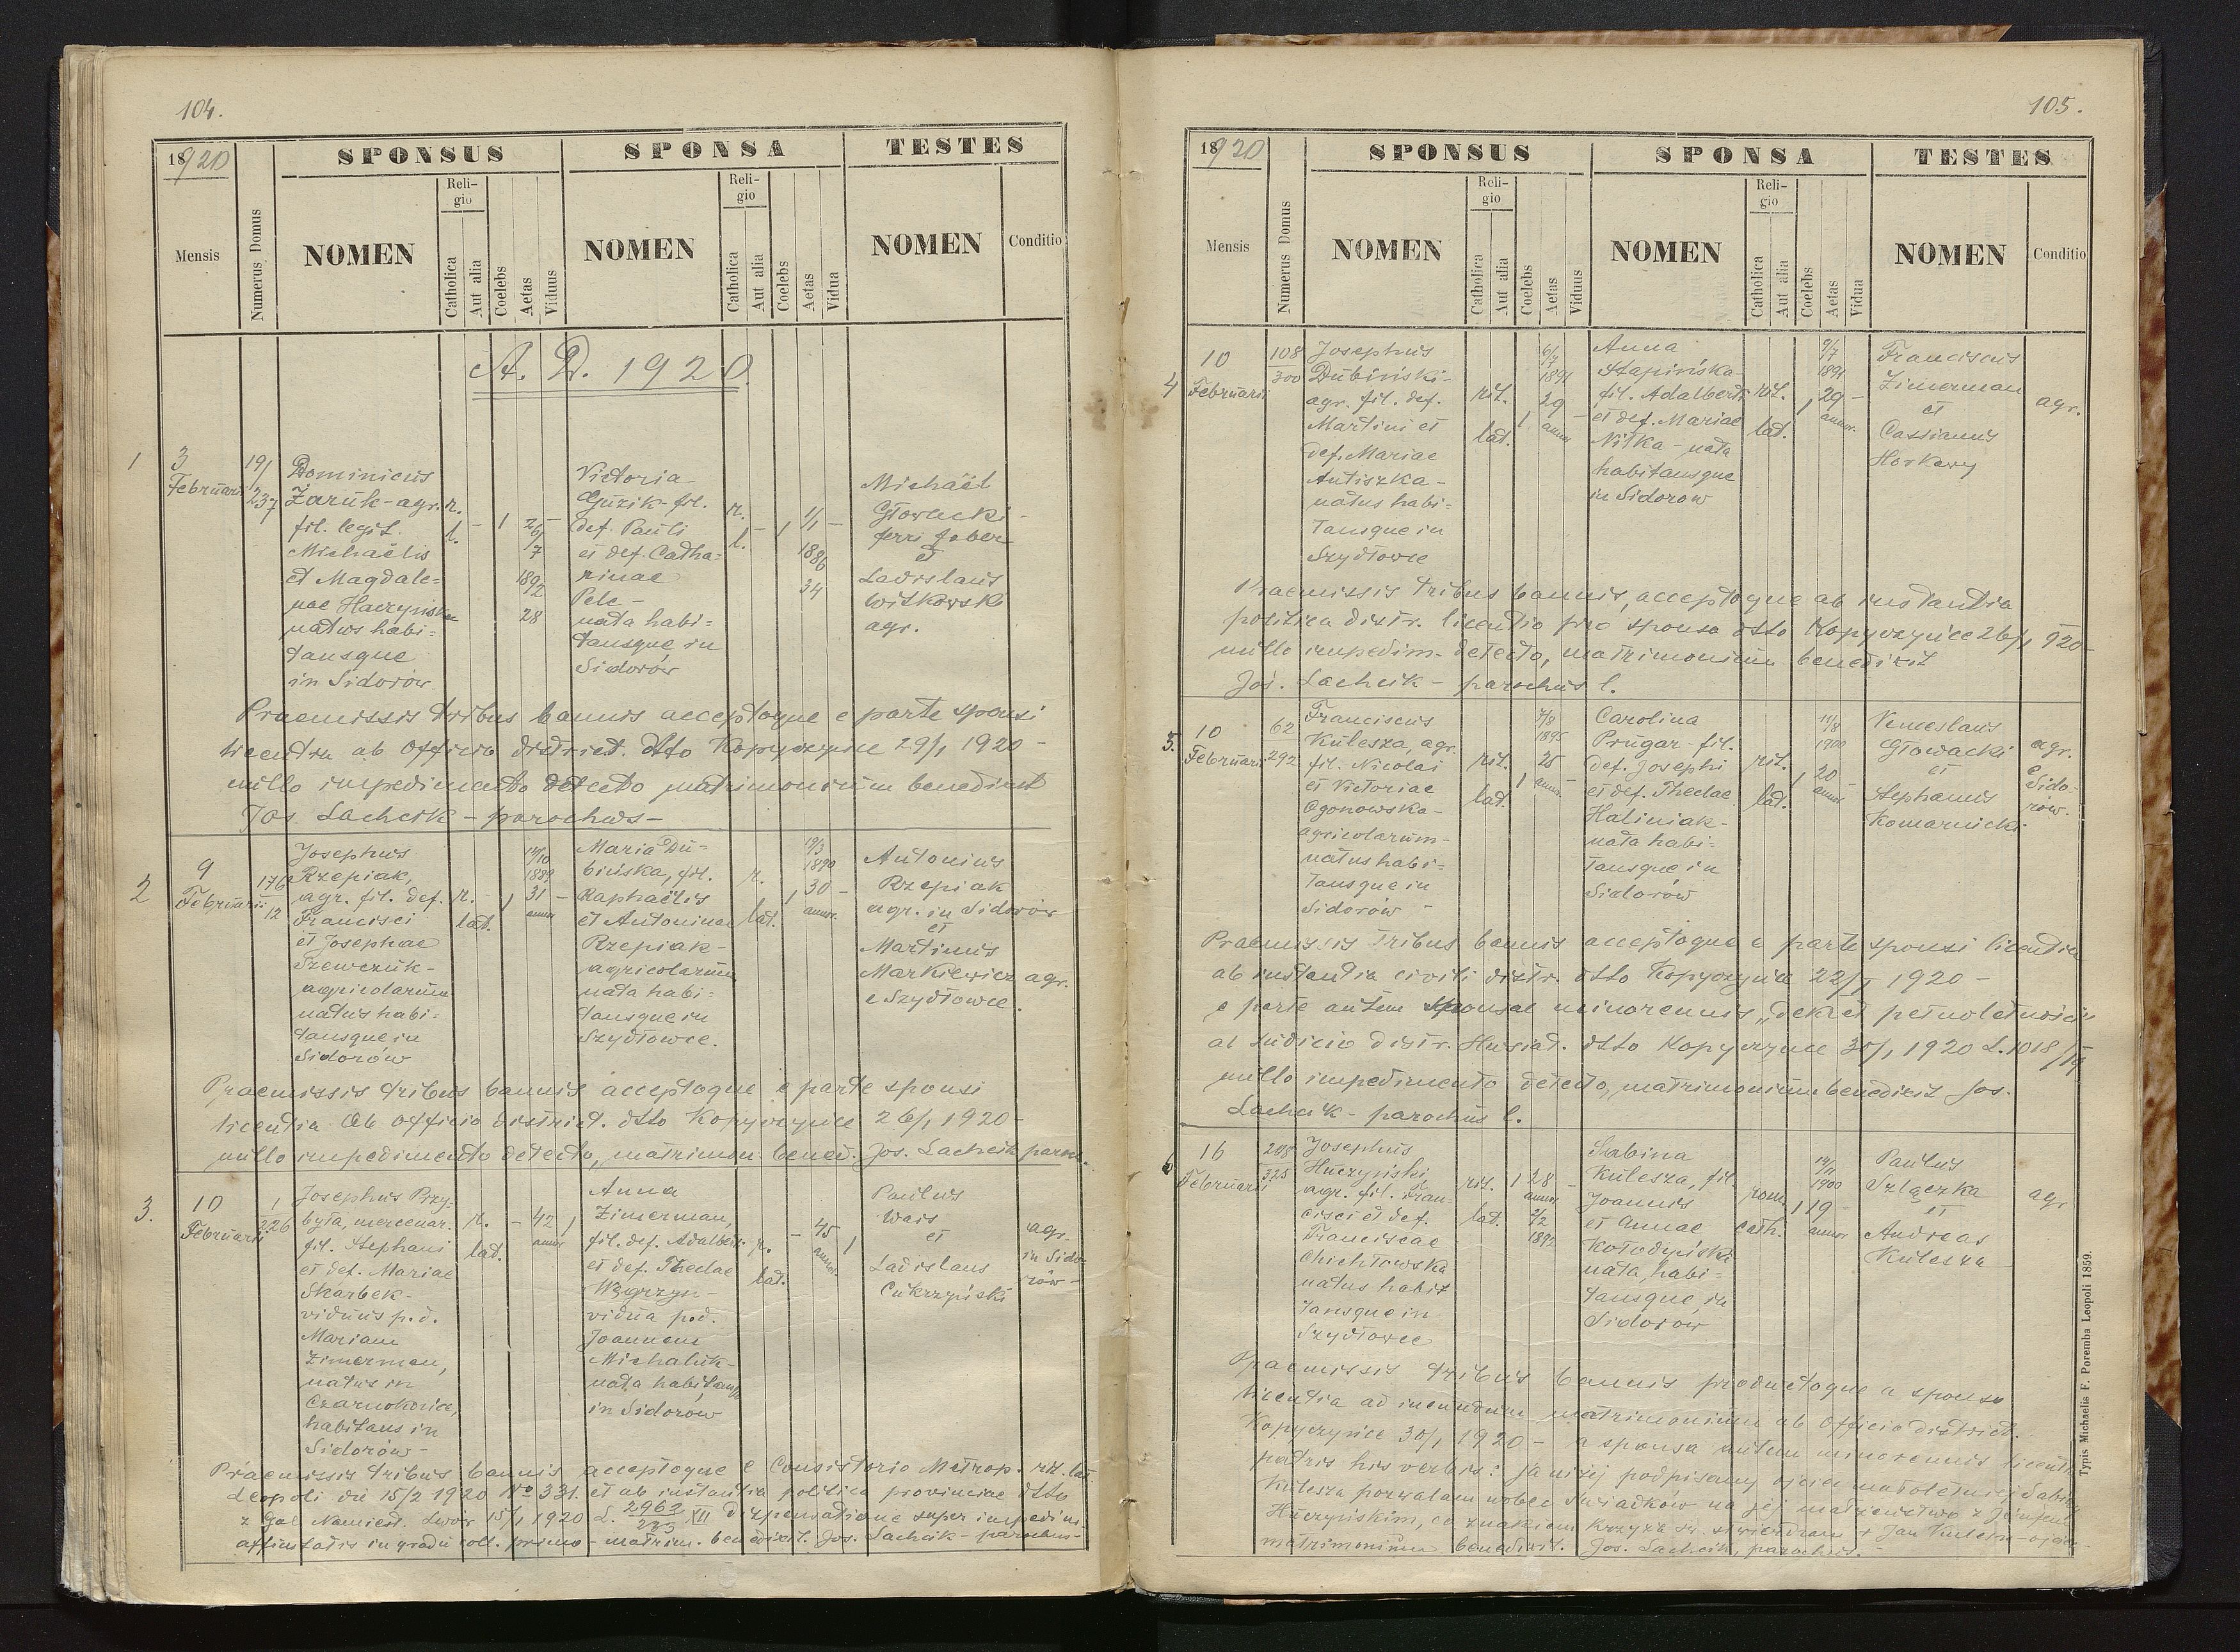 104.
18920
SPONSUS
SPONSA
TESTES
Mensis
Numerus Domus
NOMEN
Religio
Catholica
Aut alia
Coelebs
Aetas
Viduus
NOMEN
Religio
Catholica
Aut alia
Coelebs
Aetas
Vidua
NOMEN
Conditio
A. D. 1920.
1
3
Februarii
191
237
Dominicus
Zaruk - agr.
fil. legit.
Michaëlis
et Magdale=
nae
natus habi=
tansque
in Sidorow
r.
l.
- 1
26/7
1892
28
Victoria
Guzik - fil.
def. Pauli
et def. Catha=
rinae
Pele -
nata habi=
tansque in
Sidorów
r.
l.
- 1
1/1
1886
34
Michaël
Głowecki -
ferri faber
et
Ladislaus
Witkowski
agr.
Praemissis tribus bannis acceptoque e parte sponsi
licentia ab Officio district. dtto Kopyczynce 29/1 1920 -
nullo impedimento detecto matrimonium benedixit
Jos. Lachcik - parochus -
2
9
Februarii
176
12
Josephus
Rzepiak,
agr. fil. def.
Francisci
et Josephae
Szewczuk -
agricolarum
natus habi=
tansque in
Sidorów
r.
lat.
1889
31 -
annor.
Maria Du=
bińska, fil.
Raphaëlis
et Antoninae
Rzepiak -
agricolarum
nata habi=
tansque in
Szydłowce.
r.
lat.
1890
30 -
annor.
Antonius
Rzepiak
agr. in Sidorów
et
Martinus
Markiewicz agr.
e Szydłowce.
Praemissis tribus bannis acceptoque e parte sponsi
licentia ab Officio district. dtto Kopyczynce 26/1 1920 -
nullo impedimento detecto, matrimon. bened. Jos. Lachcik paroch.
3.
10
Februarii
1
226
Josephus Przy=
była, mercenar.
fil. Stephani
et def. Mariae
Skarbek -
viduus p. d.
Mariam
Zimerman,
natus in
Czarnokońce,
habitans in
Sidorów -
r.
lat.
- 42 1
annor
Anna
Zimerman,
fil. def. Adalberti
et def. Theclae
Węgrzyn -
vidua p. d.
Joannem
Michaluk -
nata habitansq.
in Sidorow
r.
lat.
- 45 1
annor.
Paulus
Wais
et
Ladislaus
Cukrzyński
agr.
in Sido
rów -
Praemissis tribus bannis acceptoque e Consistorio Metrop. rit. lat
Leopoli die 15/2 1920 No 331. et ab instantia politica provinciae dtto
z Gal. Namiest. Lwów 15/1 1920 L. 2962/225 VII dispensatione super impedim.
affinitatis in gradu coll. primo - matrim. benedixit. Jos. Lachcik - parochus -
105.
18920
SPONSUS
SPONSA
TESTES
Mensis
Numerus Domus
NOMEN
Religio
Catholica
Aut alia
Coelebs
Aetas
Viduus
NOMEN
Religio
Catholica
Aut alia
Coelebs
Aetas
Vidua
NOMEN
Conditio
4
10
Februarii
108
300
Josephus
Dubiński -
agr. fil. def.
Martini et
def. Mariae
Antiszka -
natus habi=
tansque in
Szydłowce
rit.
lat.
1
6/7
1891
29 -
annor
Anna
Stapińska -
fil. Adalberti
et def. Mariae
Nitka - nata
habitansque
in Sidorow
rit.
lat.
1
9/7
1891
29 -
annor.
Franciscus
Zimerman
et
Cassianus
Horkawy
agr.
Praemissis tribus bannis, acceptoque ab instantia
politica distr. licentia pro sponso dtto Kopyczynce 26/1 920 -
nullo impedim. detecto, matrimonium benedixit
Jos. Lachcik - parochus l.
5.
10
Februarii
62
292
Franciscus
Kulesza, agr.
fil. Nicolai
et Victoriae
Ogonowska -
agricolarum -
natus habi=
tansque in
Sidorów -
rit.
lat.
1
7/8
1895
25
annor
Carolina
Prugar - fil.
def. Josephi
et def. Theclae
Haliniak -
nata habi=
tansque in
Sidorów
rit.
lat.
1
11/8
1900
20 -
annor
Venceslaus
Głowacki
et
Stephanus
Komarnicki
agr.
e
Sido-
rów.
Praemissis tribus bannis acceptoque e parte sponsi licentia
ab instantia civili distr. dtto Kopyczynce 22/I 1920 -
e parte autem sponsae minorennis „dekret pełnoletności"
ab Iudicio distr. Husiat. dtto Kopyczynce 30/1 1920 L. 1018/19
nullo impedimento detecto, matrimonium benedixit Jos.
Lachcik - parochus l.
6
16
Februarii
208
325
Josephus
Huczyński
agr. fil. Fran=
cisci et def.
Franciscae
Chichłowska
natus habit
tansque in
Szydłowce
rit.
lat.
1 28 -
annor
2/2
1892
Sabina
Kulesza, fil.
Joannis
et Annae
Kołodyńska
nata, habi=
tansque in
Sidorow
rom.
cath.
1900
1 19 -
annor
Paulus
Szlączka
et
Andreas
Kulesza
agr
Praemissis tribus bannis productoque a sponso
licentia ad ineundum matrimonium ab Officio district.
Kopyczynce 30/1 1920 - a sponsa autem minorennis licentia
patris his verbis: Ja niżej podpisany ojciec małoletniej Sabiny
Kulesza pozwalam wobec świadków na jej małżeństwo z Józefem
Huczyńskim, co znakiem krzyża św. stwierdzam + Jan Kulesza - ojciec -
matrimonium benedixit. Jos. Lachcik, parochus. -
Typis Michaelis F. Poremba Leopoli 1859.